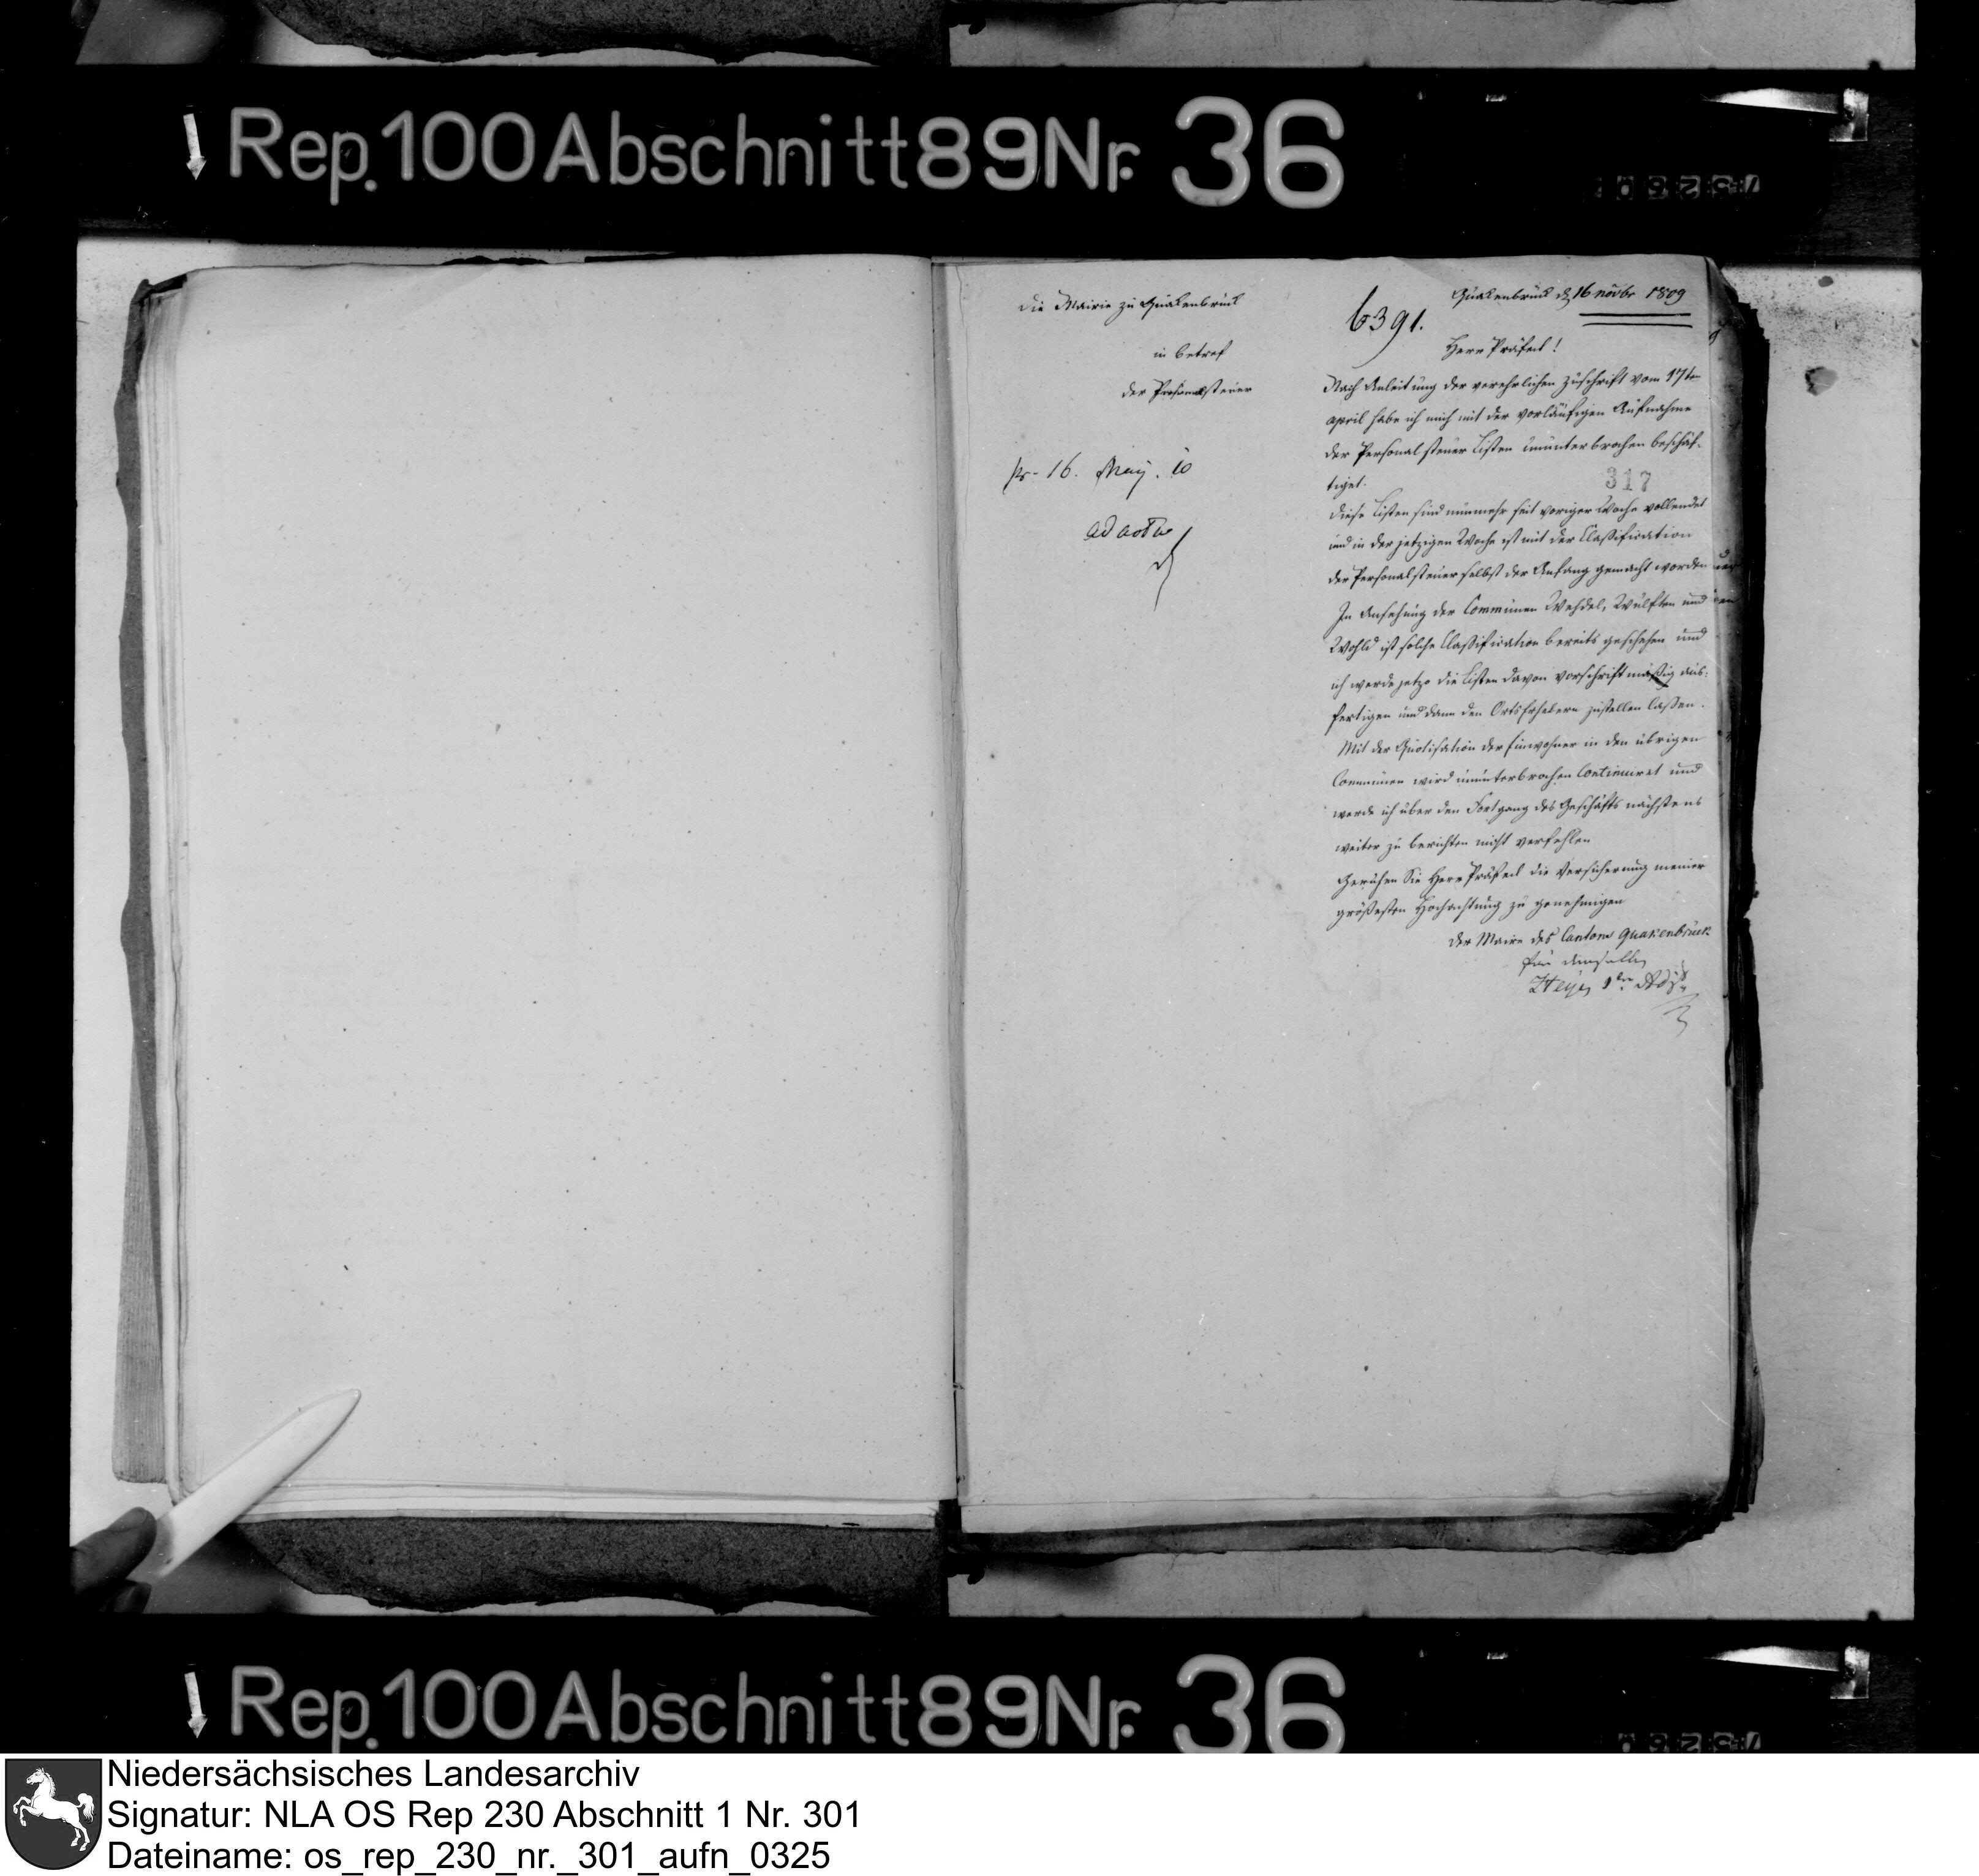 Rep. 100 Abschnitt 89 Nr. 36
Die Mairie zu Quakenbrück
in betref
der Personalsteuer
pr. 16. May. 10
ad acta
6391.
Quakenbrück d 16 novbr 1809
Herr Präfect!
Nach Anleitung der verehrlichen Zuschrift vom 17ten
april habe ich mich mit der vorläufigen Aufnahme
der Personalsteuer Listen ununterbrochen beschäf-
tiget.
317
Diese Listen sind nunmehr seit voriger Woche vollendet
und in der jetzigen Woche ist mit der Classification
der Personalsteuer selbst der Anfang gemacht worden
In Ansehung der Communen Wehdel, Wulften und
Wohld ist solche Classification bereits geschehen und
ich werde jetzo die Listen davon vorschriftmäßig aus-
fertigen und dann den Orts Erhebern zustellen laßen.
Mit der Quotisation der Einwohner in den übrigen
Communen wird ununterbrochen Continuiret und
werde ich über den Fortgang des Geschäfts nächstens
weiter zu berichten nicht verfehlen
Geruhen Sie Herr Präfect die Versicherung meiner
größesten Hochachtung zu genehmigen
Der Maire des Cantons Quakenbrück
für denselben
Heye 1ter Adj.
Rep. 100 Abschnitt 89 Nr. 36
Niedersächsisches Landesarchiv
Signatur: NLA OS Rep 230 Abschnitt 1 Nr. 301
Dateiname: os_rep_230_nr._301_aufn_0325